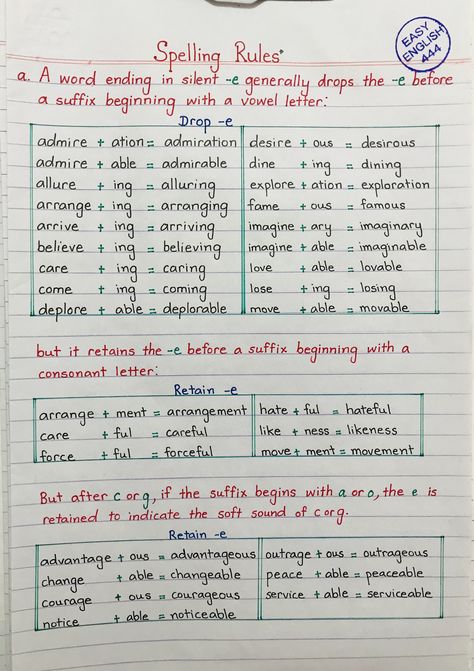 EASY
ENGLISH
444
Spelling Rules
a. A word ending in silent -e generally drops the -e before
a suffix beginning with a vowel letter:
Drop -e
admire + ation = admiration desire + ous = desirous
admire + able = admirable dine + ing = dining
allure + ing = alluring explore + ation = exploration
arrange + ing = arranging fame + ous = famous
arrive + ing = arriving imagine + ary = imaginary
believe + ing = believing imagine + able = imaginable
care + ing = caring love + able = lovable
come + ing = coming lose + ing = losing
deplore + able = deplorable move + able = movable
but it retains the -e before a suffix beginning with a
consonant letter:
Retain -e
arrange + ment = arrangement hate + ful = hateful
care + ful = careful like + ness = likeness
force + ful = forceful move + ment = movement
But after c or g, if the suffix begins with a or o, the e is
retained to indicate the soft sound of c or g.
Retain -e
advantage + ous = advantageous outrage + ous = outrageous
change + able = changeable peace + able = peaceable
courage + ous = courageous service + able = serviceable
notice + able = noticeable